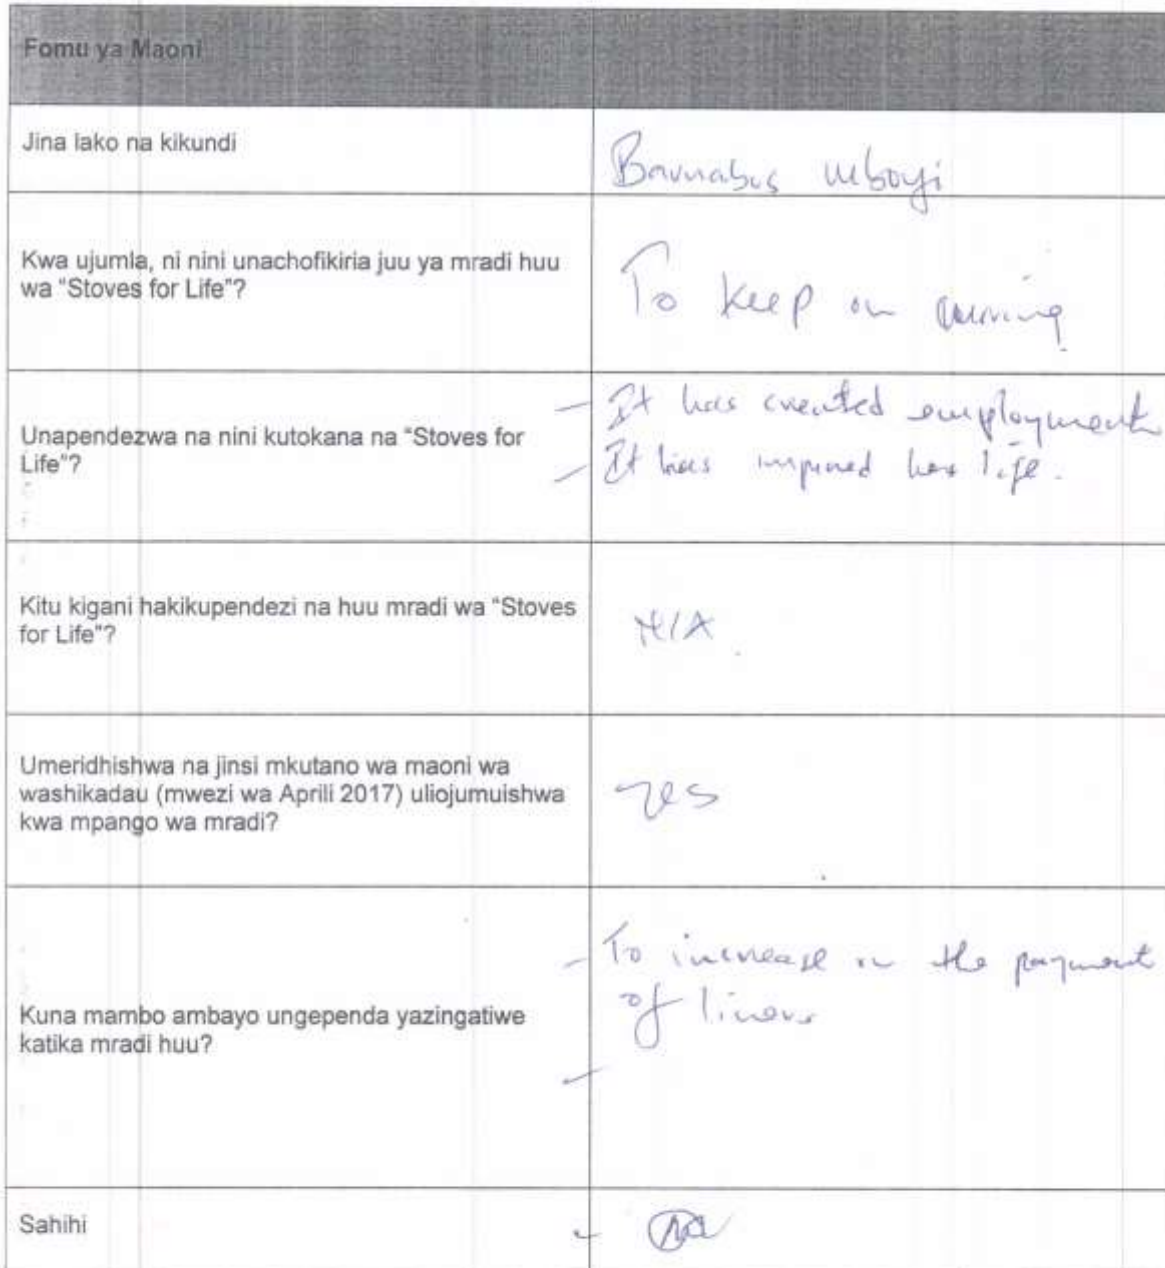 Fomu ya Maoni
Jina lako na kikundi
Barnabas Mboyi
Kwa ujumla, ni nini unachofikiria juu ya mradi huu
wa "Stoves for Life"?
To keep on
Unapendezwa na nini kutokana na "Stoves for
Life"?
- It has created employment
- It has life.
Kitu kigani hakikupendezi na huu mradi wa "Stoves
for Life"?
N/A
Umeridhishwa na jinsi mkutano wa maoni wa
washikadau (mwezi wa Aprili 2017) uliojumuishwa
kwa mpango wa mradi?
yes
Kuna mambo ambayo ungependa yazingatiwe
katika mradi huu?
- To increase on the payment
of liners
-
Sahihi